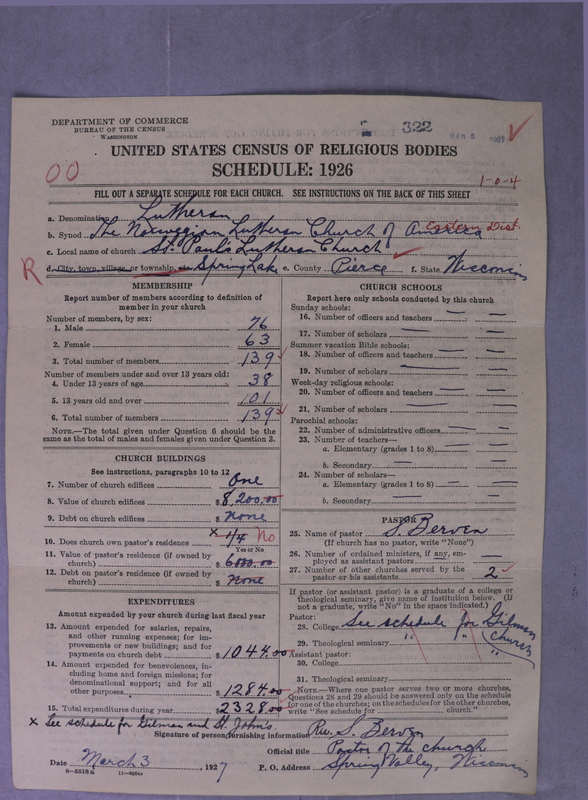 DEPARTMENT OF COMMERCE
BUREAU OF THE CENSUS
WASHINGTON
322
MAR 5 1927
UNITED STATES CENSUS OF RELIGIOUS BODIES
SCHEDULE: 1926
00
1-0-4
FILL OUT A SEPARATE SCHEDULE FOR EACH CHURCH. SEE INSTRUCTIONS ON THE BACK OF THIS SHEET
a. Denomination Lutheran
b. Synod The Norwegian Lutheran Church of America Eastern Dist.
c. Local name of church St. Paul's Lutheran Church
R
d. City, town, village, or township, etc. Spring Lake e. County Pierce f. State Wisconsin
MEMBERSHIP
Report number of members according to definition of
member in your church
Number of members, by sex:
1. Male 76
2. Female 63
3. Total number of members 139
Number of members under and over 13 years old:
4. Under 13 years of age 38
5. 13 years old and over 101
6. Total number of members 139
NOTE.—The total given under Question 6 should be the
same as the total of males and females given under Question 3.
CHURCH BUILDINGS
See instructions, paragraphs 10 to 12
7. Number of church edifices One
8. Value of church edifices $ 8,200.00
9. Debt on church edifices $ None
10. Does church own pastor's residence? x 1/4 No
Yes or No
11. Value of pastor's residence (if owned by
church) $ 6000.00
12. Debt on pastor's residence (if owned by
church) $ None
EXPENDITURES
Amount expended by church during last fiscal year
13. Amount expended for salaries, repairs,
and other running expenses; for im-
provements or new buildings; and for
payments on church debt $ 1044.00
14. Amount expended for benevolences, in-
cluding home and foreign missions; for
denominational support; and for all
other purposes $ 1284.00
15. Total expenditures during year $ 2328.00
CHURCH SCHOOLS
Report here only schools conducted by this church
Sunday schools:
16. Number of officers and teachers —
17. Number of scholars —
Summer vacation Bible schools:
18. Number of officers and teachers —
19. Number of scholars —
Week-day religious schools:
20. Number of officers and teachers —
21. Number of scholars —
Parochial schools:
22. Number of administrative officers —
23. Number of teachers—
a. Elementary (grades 1 to 8) —
b. Secondary —
24. Number of scholars—
a. Elementary (grades 1 to 8) —
b. Secondary —
PASTOR
25. Name of pastor S. Berven
(If church has no pastor, write "None")
26. Number of ordained ministers, if any, em-
ployed as assistant pastors —
27. Number of other churches served by the
pastor or his assistants 2
If pastor (or assistant pastor) is a graduate of a college or
theological seminary, give name of institution below. (If
not a graduate, write "No" in the space indicated.)
Pastor:
28. College See schedule for Gilman
church
29. Theological seminary " " "
Assistant pastor:
30. College
31. Theological seminary
NOTE.—Where one pastor serves two or more churches,
Questions 28 and 29 should be answered only on the schedule
for one of the churches; on the schedules for the other churches,
write "See schedule for church."
x See schedule for Gilman and St. John's
Signature of person furnishing information Rev. S. Berven
Official title Pastor of the church
Date March 3, 1927 P. O. Address Spring Valley, Wisconsin